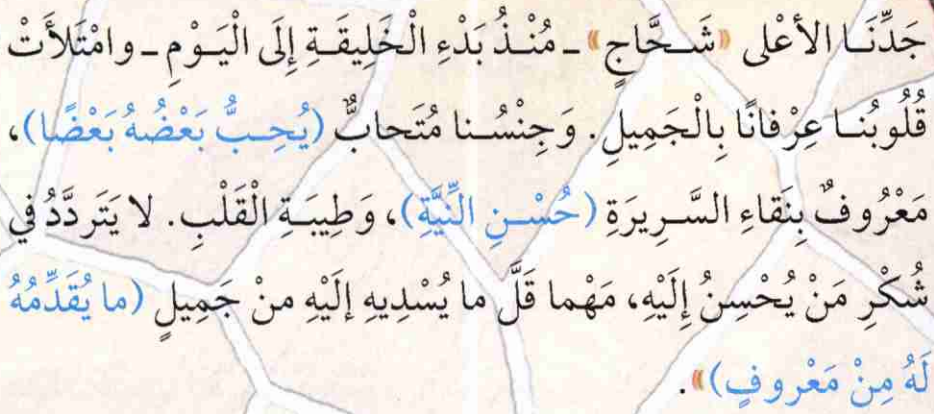 جَدِّنَا الأَعْلى «شَحَّاجٍ» ـ مُنْذُ بَدْءِ الْخَلِيقَةِ إِلَى الْيَوْمِ ـ وامْتَلَأَتْ
قُلُوبُنا عِرْفانًا بِالْجَمِيلِ. وَجِنْسُنا مُتَحابٌّ (يُحِبُّ بَعْضُهُ بَعْضًا)،
مَعْرُوفٌ بِنَقاءِ السَّرِيرَةِ (حُسْنِ النِّيَّةِ)، وَطِيبَةِ الْقَلْبِ. لا يَتَردَّدُ في
شُكْرِ مَنْ يُحْسِنُ إِلَيْهِ، مَهْما قَلَّ ما يُسْدِيهِ إلَيْهِ منْ جَمِيلٍ (ما يُقَدِّمُهُ
لَهُ مِنْ مَعْروفٍ)».